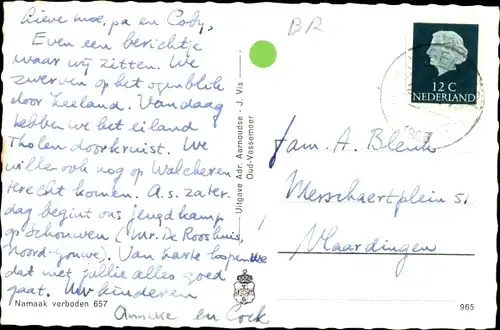 Lieve moe, pa en Cody,
Even een berichtje
waar wij zitten. We
zwerven op het ogenblik
door Zeeland. Vandaag
hebben we het eiland
Tholen doorkruist. We
willen ook nog op Walcheren
terecht komen. A.s. zater-
dag begint ons jeugdkamp
op Schouwen (Mr. De Rooshuis,
Noord-Gouwe). Van harte hopen we
dat met jullie alles goed
gaat. Uw kinderen
Anneke en Cock
Namaak verboden 657
Uitgave Adr. Aarnoudse - J. Vis
Oud-Vossemeer
BR
12 C
NEDERLAND
Fam. A. Blenk
Merschaertplein 51
Vlaardingen
965